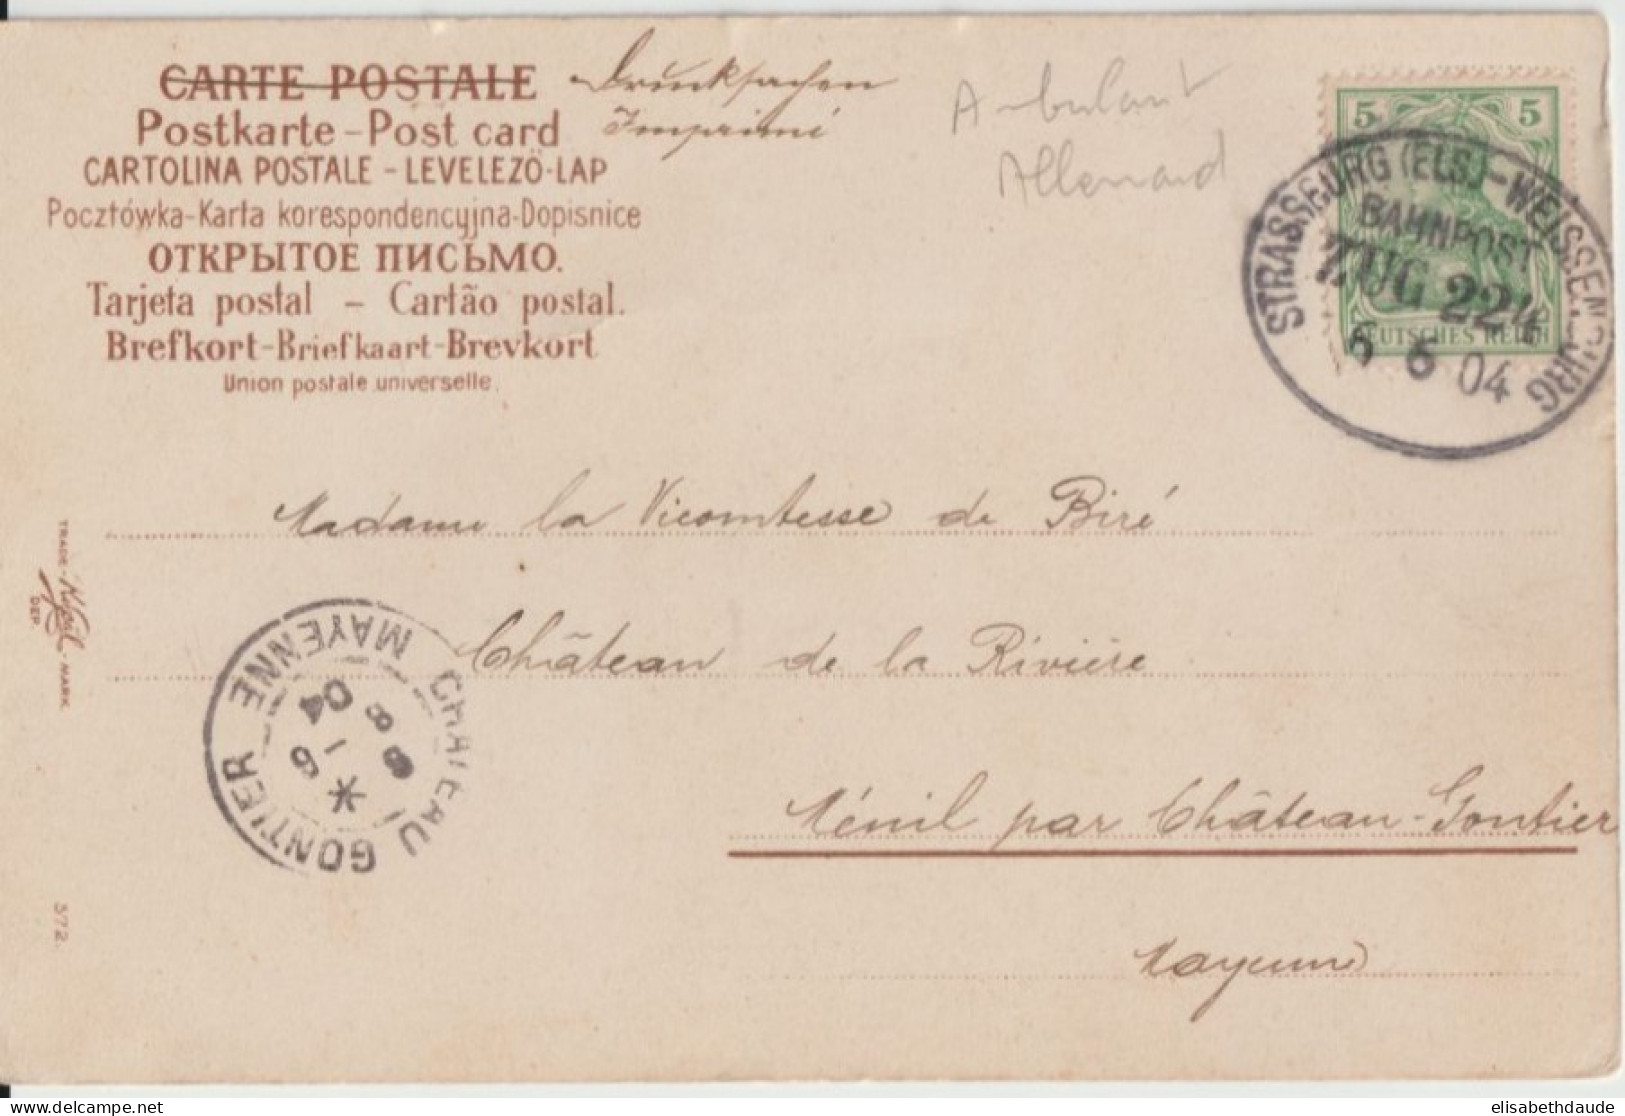 CARTE POSTALE
Postkarte - Post card
CARTOLINA POSTALE - LEVELEZŐ-LAP
Pocztówka-Karta korespondencyjna-Dopisnice
ОТКРЫТОЕ ПИСЬМО.
Tarjeta postal - Cartão postal.
Brefkort-Briefkaart-Brevkort
Union postale universelle.
Drucksachen
Imprimé
Ambulant
Allemand
5 5
DEUTSCHES REICH
STRASSBURG (ELS.) - WEISSENBURG
BAHNPOST
ZUG 224
6 6 04
Madame la Vicomtesse de Biré
Château de la Rivière
Ménil par Château-Gontier
Mayenne
CHATEAU GONTIER
MAYENNE
8
8 - 6
04
TRADE - MARK
DEP.
372.
elisabethdaude